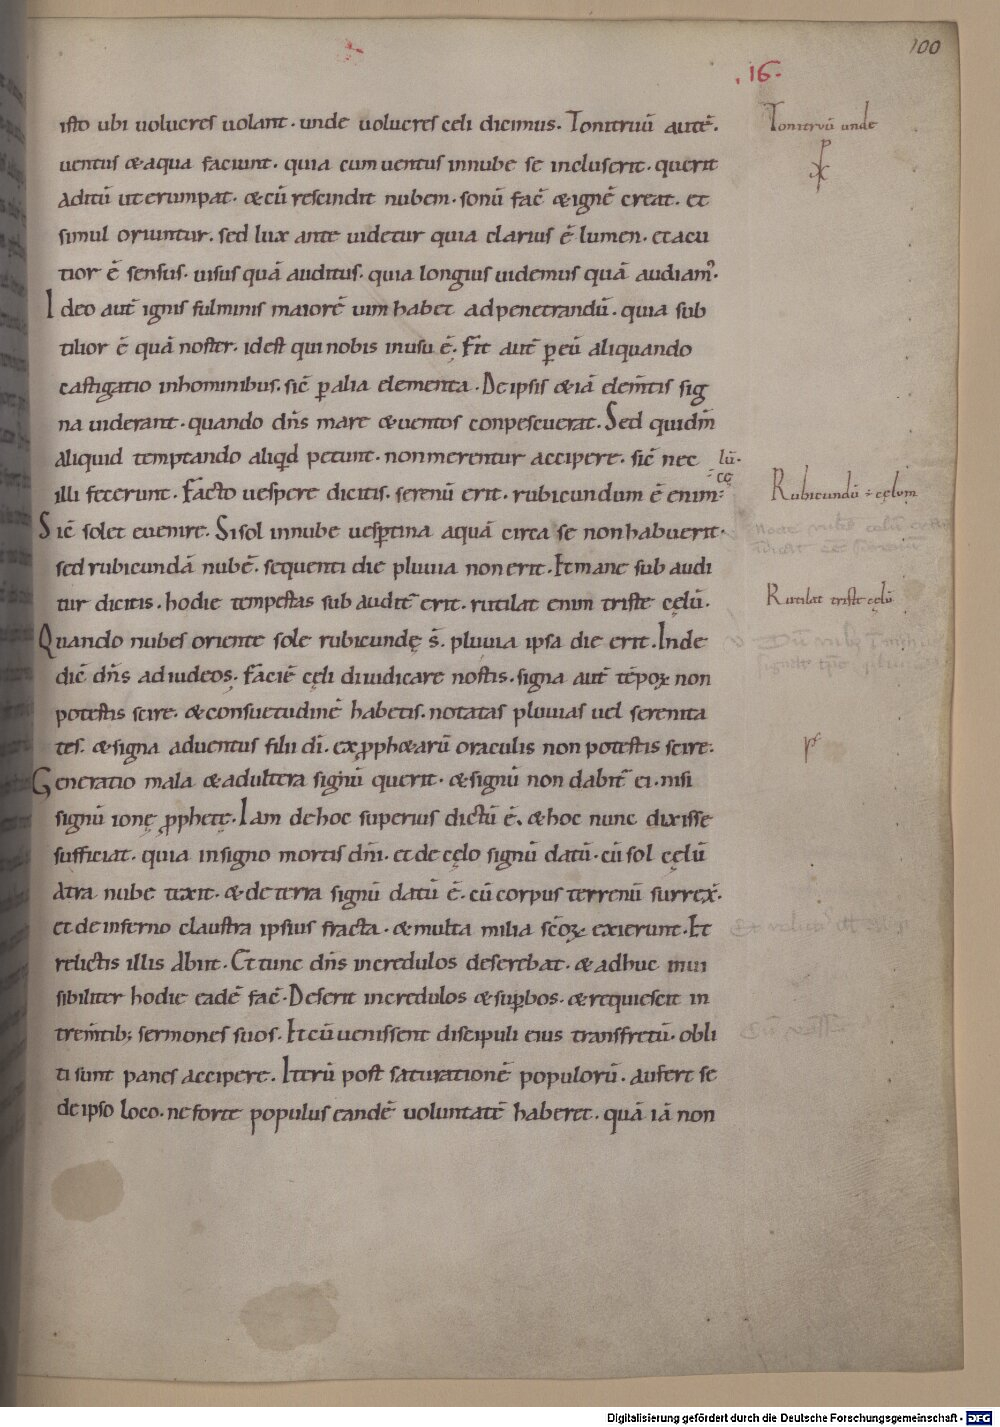 100
.16.
isto ubi uolucres uolant. unde uolucres celi dicimus. Tonitruū autē.
Tonitruū unde
uentus & aqua faciunt. quia cum uentus in nube se incluserit. querit
aditū ut erumpat. & cū rescindit nubem. sonū fac̄ & ignē creat. et
simul oriuntur. sed lux ante uidetur quia clarius ē lumen. et acu
tior ē sensus. uisus quā auditus. quia longius uidemus quā audiam᾽.
Ideo aut̄ ignis fulminis maiorē uim habet ad penetrandū. quia sub
tilior ē quā noster. id est qui nobis in usu ē. Fit aut̄ ꝑ eū aliquando
castigatio in hominibus. sic̄ ꝑ alia elementa. De ipsis & iā elem̄tis sig
na uiderant. quando dn̄s mare & uentos conpescuerat. Sed quidm̄
aliquid temptando aliqd petunt. non merentur accipere. sic̄ nec
illi fecerunt. Facto uespere dicitis. serenū erit. rubicundum ē enim
cę
lū.
Rubicundū ÷ cęlum
Sic̄ solet euenire. Si sol in nube uesꝑtina aquā circa se non habuerit.
sed rubicundā nubē. sequenti die pluuia non erit. Et mane sub audi
tur dicitis. hodie tempestas sub audit̄ erit. rutilat enim triste cęlū.
Rutilat triste cęlū
Quando nubes oriente sole rubicundę s̄. pluuia ipsa die erit. Inde
dic̄ dn̄s ad iudeos. faciē cęli diiudicare nostis. signa aut̄ tēpoꝝ non
potestis scire. & consuetudinē habetis. notatas pluuias uel serenita
tes. & signa aduentus filii dī. ex ꝓph&arū oraculis non potestis scire.
Generatio mala & adultera signū querit. & signū non dabit̄ ei. nisi
signū ionę ꝓphetę. Iam de hoc superius dictū ē. & hoc nunc dixisse
sufficiat. quia in signo mortis dn̄i. et de cęlo signū datū. cū sol cęlū
atra nube texit. & de terra signū datū ē. cū corpus terrenū surrex̄.
et de inferno claustra ipsius fracta. & multa milia sc̄oꝝ exierunt. Et
relictis illis abiit. Et tunc dn̄s incredulos deserebat. & adhuc inui
sibiliter hodie eadē fac̄. Deserit incredulos & suꝑbos. & requiescit in
trem̄tib; sermones suos. Et cū uenissent discipuli eius transfretū. obli
ti sunt panes accipere. Iterū post saturationē populorū. aufert se
de ipso loco. ne forte populus eandē uoluntatē haberet. quā iā non
Digitalisierung gefördert durch die Deutsche Forschungsgemeinschaft - DFG